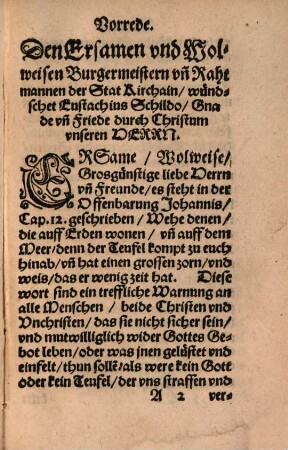 Vorrede.
Den Ersamen vnd Wol-
weisen Burgermeistern vñ Raht
mannen der Stat Kirchain/ wünd-
schet Eustachius Schildo/ Gna
de vñ Friede durch Christum
vnseren HERRN.
ERSame/ Wolweise/
Grosgünstige liebe Herrn
vñ Freunde/ es steht in der
Offenbarung Johannis/
Cap. 12. geschrieben/ Wehe denen/
die auff Erden wonen/ vñ auff dem
Meer/ denn der Teufel kompt zu euch
hinab/ vñ hat einen grossen zorn/ vnd
weis/ das er wenig zeit hat. Diese
wort sind ein treffliche Warnung an
alle Menschen/ beide Christen vnd
Vnchristen/ das sie nicht sicher sein/
vnd mutwilliglich wider Gottes Ge-
bot leben/ oder was jnen gelüstet vnd
einfelt/ thun solle/ als were kein Gott
oder kein Teufel/ der vns straffen vnd
A 2 ver-